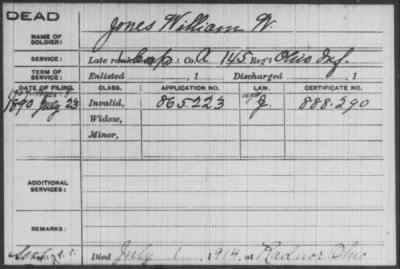 DEAD
NAME OF SOLDIER: Jones William W.
SERVICE: Late rank Cap, Co. A 145 Reg't Ohio Inf.
TERM OF SERVICE: Enlisted , 1 Discharged , 1
DATE OF FILING. CLASS. APPLICATION NO. LAW. CERTIFICATE NO.
1890 July 23 Invalid, 865.223 J. 888.290
Widow,
Minor,
ADDITIONAL SERVICES:
REMARKS:
Died July 1, 1914, at Radnor Ohio